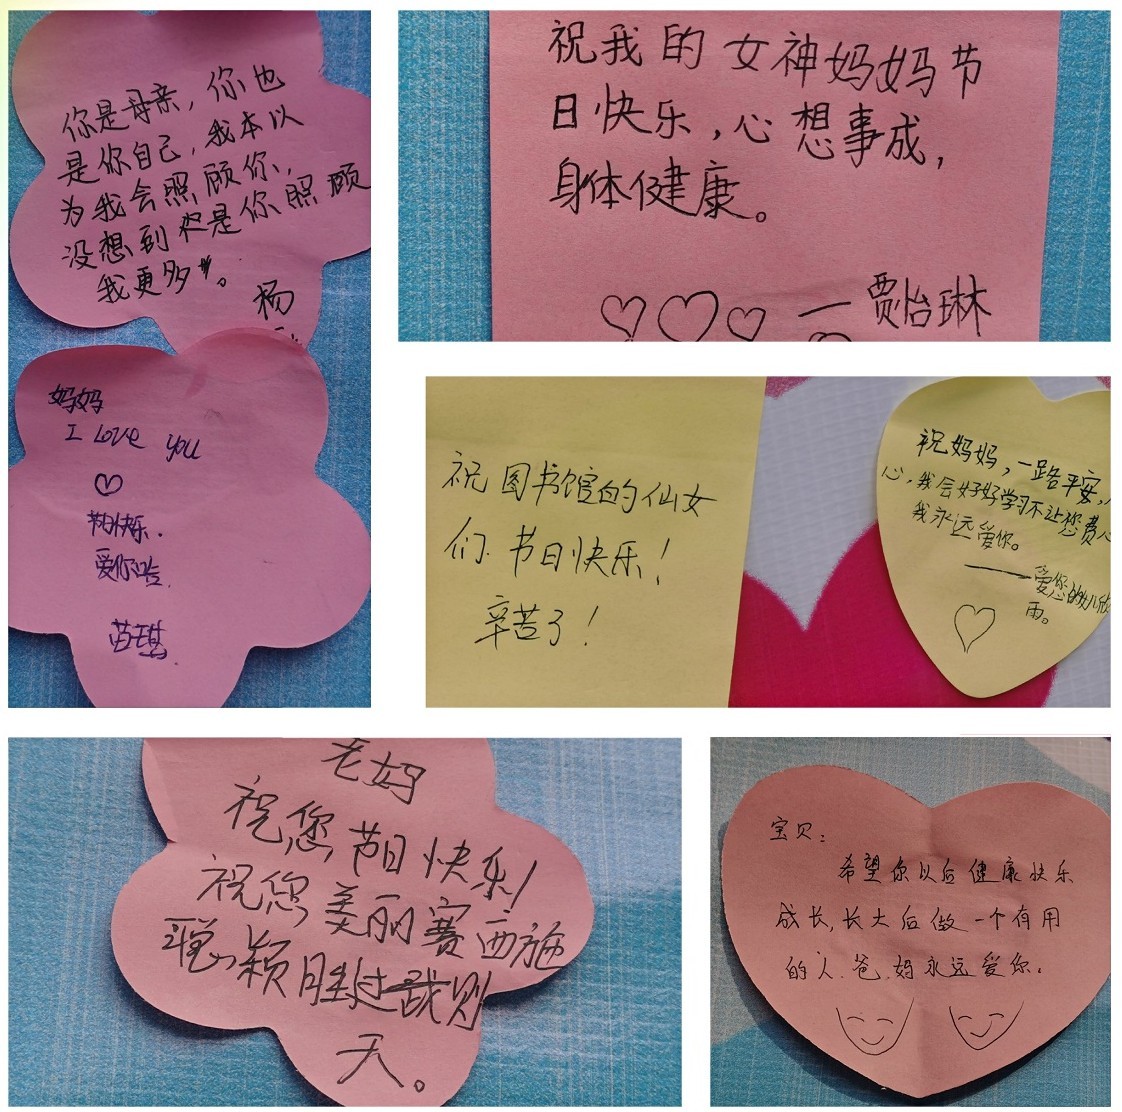 你是母亲，你也
是你自己，我本以
为我会照顾你，
没想到还是你照顾
我更多。
杨
妈妈
I Love you
节日快乐.
爱你哈.
苗琪
祝我的女神妈妈节
日快乐，心想事成，
身体健康。
—贾怡琳
祝图书馆的仙女
们节日快乐！
辛苦了！
祝妈妈，一路平安，
心，我会好好学习不让您费心
我永远爱你。
——爱您的女儿欣
雨。
老妈
祝您节日快乐!
祝您美丽赛西施
聪颖胜过武则
天。
宝贝：
希望你以后健康快乐
成长,长大后做一个有用
的人.爸.妈永远爱你.